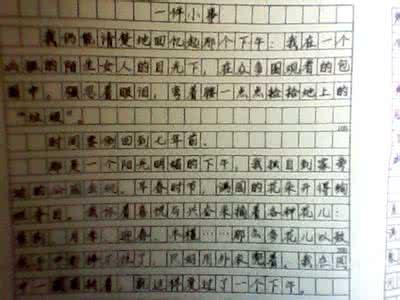 一件小事
我仍能清楚地回忆起那个下午：我在一个
的陌生女人的目光下，在众多围观者的包
围中，强忍着眼泪，弯着腰一点点捡拾地上的
“垃圾”。
时间要倒回到七年前。
那是一个阳光明媚的下午，我独自到家旁
的公园去玩。早春时节，满园的花朵开得绚
我怀着喜悦与兴奋采摘着各种花儿：
月季、迎春、木槿……那么多花儿以致
我在园
中一 就这样度过了一个下午。